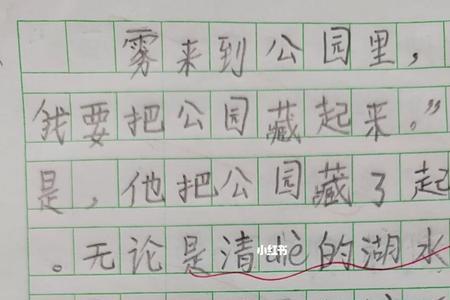 雾来到公园里，
我要把公园藏起来。”
是，他把公园藏了起
小红书
。无论是清的湖水